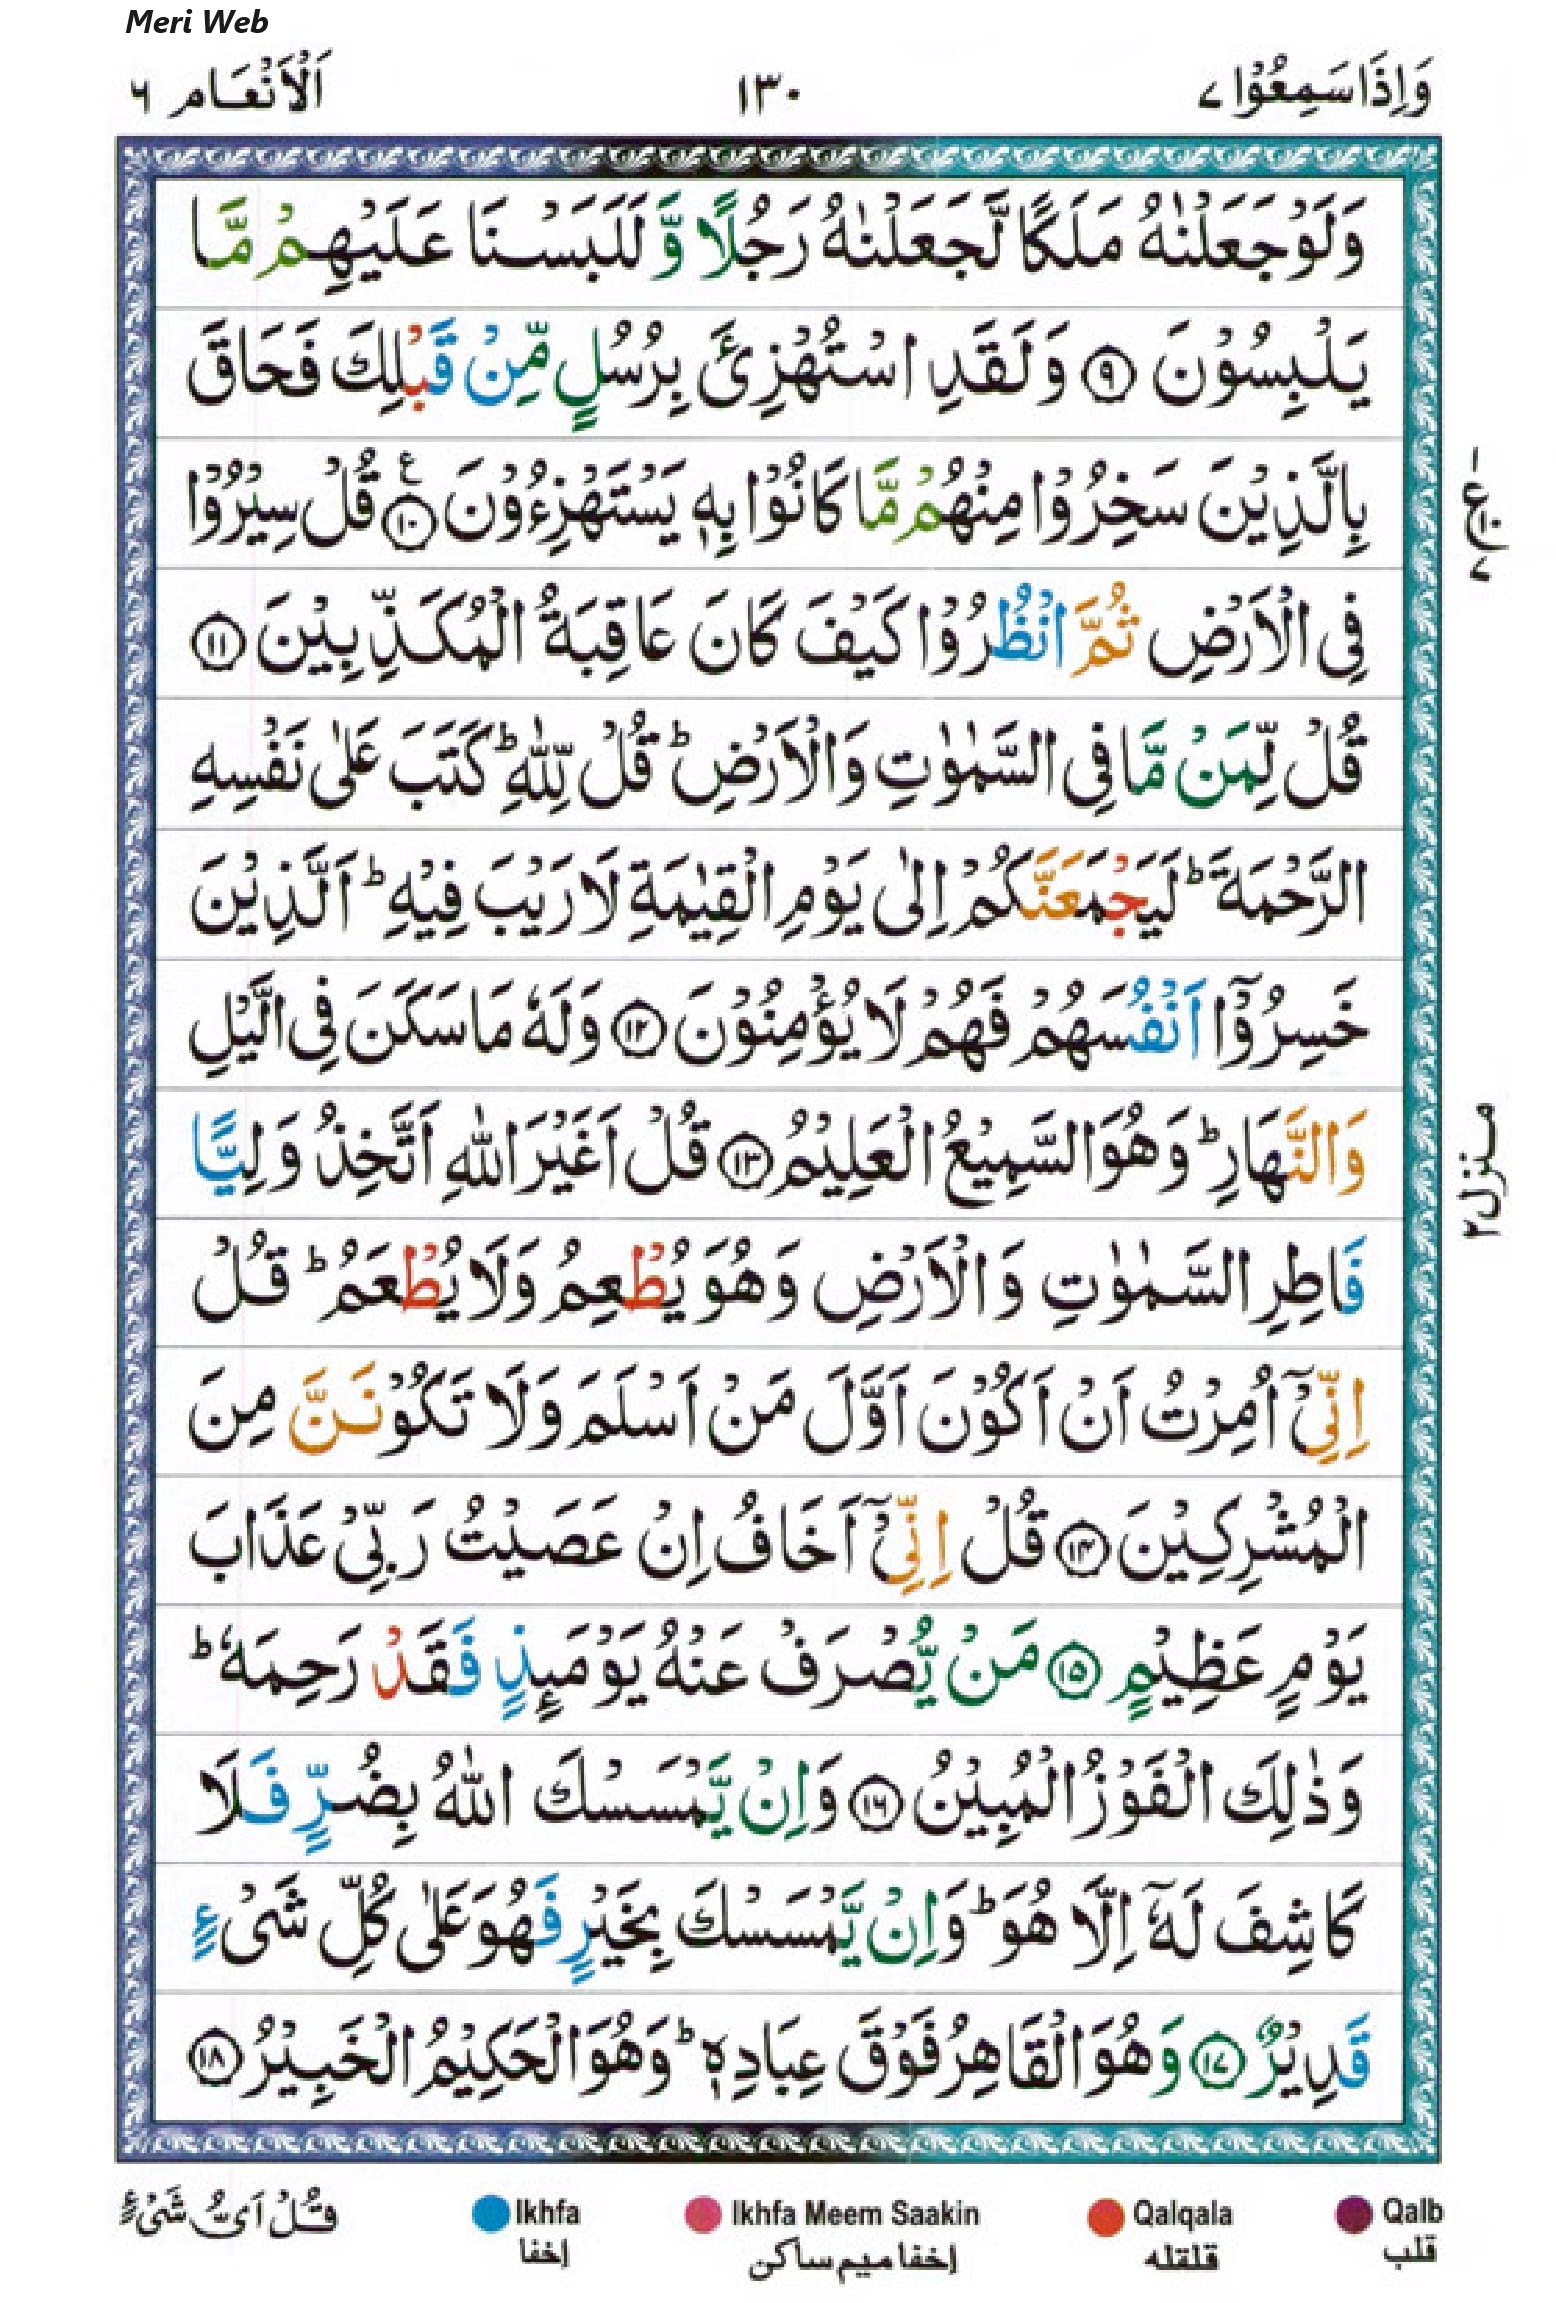 Meri Web
وَاِذَا سَمِعُوْا ٧
١٣٠
اَلْاَنْعَام ٦
وَلَوْ جَعَلْنٰهُ مَلَكًا لَّجَعَلْنٰهُ رَجُلًا وَّ لَلَبَسْنَا عَلَيْهِمْ مَّا
يَلْبِسُوْنَ ۹ وَلَقَدِ اسْتُهْزِئَ بِرُسُلٍ مِّنْ قَبْلِكَ فَحَاقَ
بِالَّذِيْنَ سَخِرُوْا مِنْهُمْ مَّا كَانُوْا بِهٖ يَسْتَهْزِءُوْنَ ۱۰ ع قُلْ سِيْرُوْا
ع
٧
فِى الْاَرْضِ ثُمَّ انْظُرُوْا كَيْفَ كَانَ عَاقِبَةُ الْمُكَذِّبِيْنَ ۱۱
قُلْ لِّمَنْ مَّا فِى السَّمٰوٰتِ وَالْاَرْضِ ؕ قُلْ لِّلّٰهِ ؕ كَتَبَ عَلٰى نَفْسِهِ
الرَّحْمَةَ ؕ لَيَجْمَعَنَّكُمْ اِلٰى يَوْمِ الْقِيٰمَةِ لَا رَيْبَ فِيْهِ ؕ اَلَّذِيْنَ
خَسِرُوْٓا اَنْفُسَهُمْ فَهُمْ لَا يُؤْمِنُوْنَ ۱۲ وَلَهٗ مَا سَكَنَ فِى الَّيْلِ
وَالنَّهَارِ ؕ وَهُوَ السَّمِيْعُ الْعَلِيْمُ ۱۳ قُلْ اَغَيْرَ اللّٰهِ اَتَّخِذُ وَلِيًّا
منزل ٢
فَاطِرِ السَّمٰوٰتِ وَالْاَرْضِ وَهُوَ يُطْعِمُ وَلَا يُطْعَمُ ؕ قُلْ
اِنِّىْٓ اُمِرْتُ اَنْ اَكُوْنَ اَوَّلَ مَنْ اَسْلَمَ وَلَا تَكُوْنَنَّ مِنَ
الْمُشْرِكِيْنَ ۱۴ قُلْ اِنِّىْٓ اَخَافُ اِنْ عَصَيْتُ رَبِّىْ عَذَابَ
يَوْمٍ عَظِيْمٍ ۱۵ مَنْ يُّصْرَفْ عَنْهُ يَوْمَئِذٍ فَقَدْ رَحِمَهٗ ؕ
وَذٰلِكَ الْفَوْزُ الْمُبِيْنُ ۱۶ وَاِنْ يَّمْسَسْكَ اللّٰهُ بِضُرٍّ فَلَا
كَاشِفَ لَهٗٓ اِلَّا هُوَ ؕ وَاِنْ يَّمْسَسْكَ بِخَيْرٍ فَهُوَ عَلٰى كُلِّ شَىْءٍ
قَدِيْرٌ ۱۷ وَهُوَ الْقَاهِرُ فَوْقَ عِبَادِهٖ ؕ وَهُوَ الْحَكِيْمُ الْخَبِيْرُ ۱۸
Qalb Qalqala Ikhfa Meem Saakin Ikhfa قُلْ اَىُّ شَىْءٍ
قلب قلقله إخفا ميم ساكن إخفا